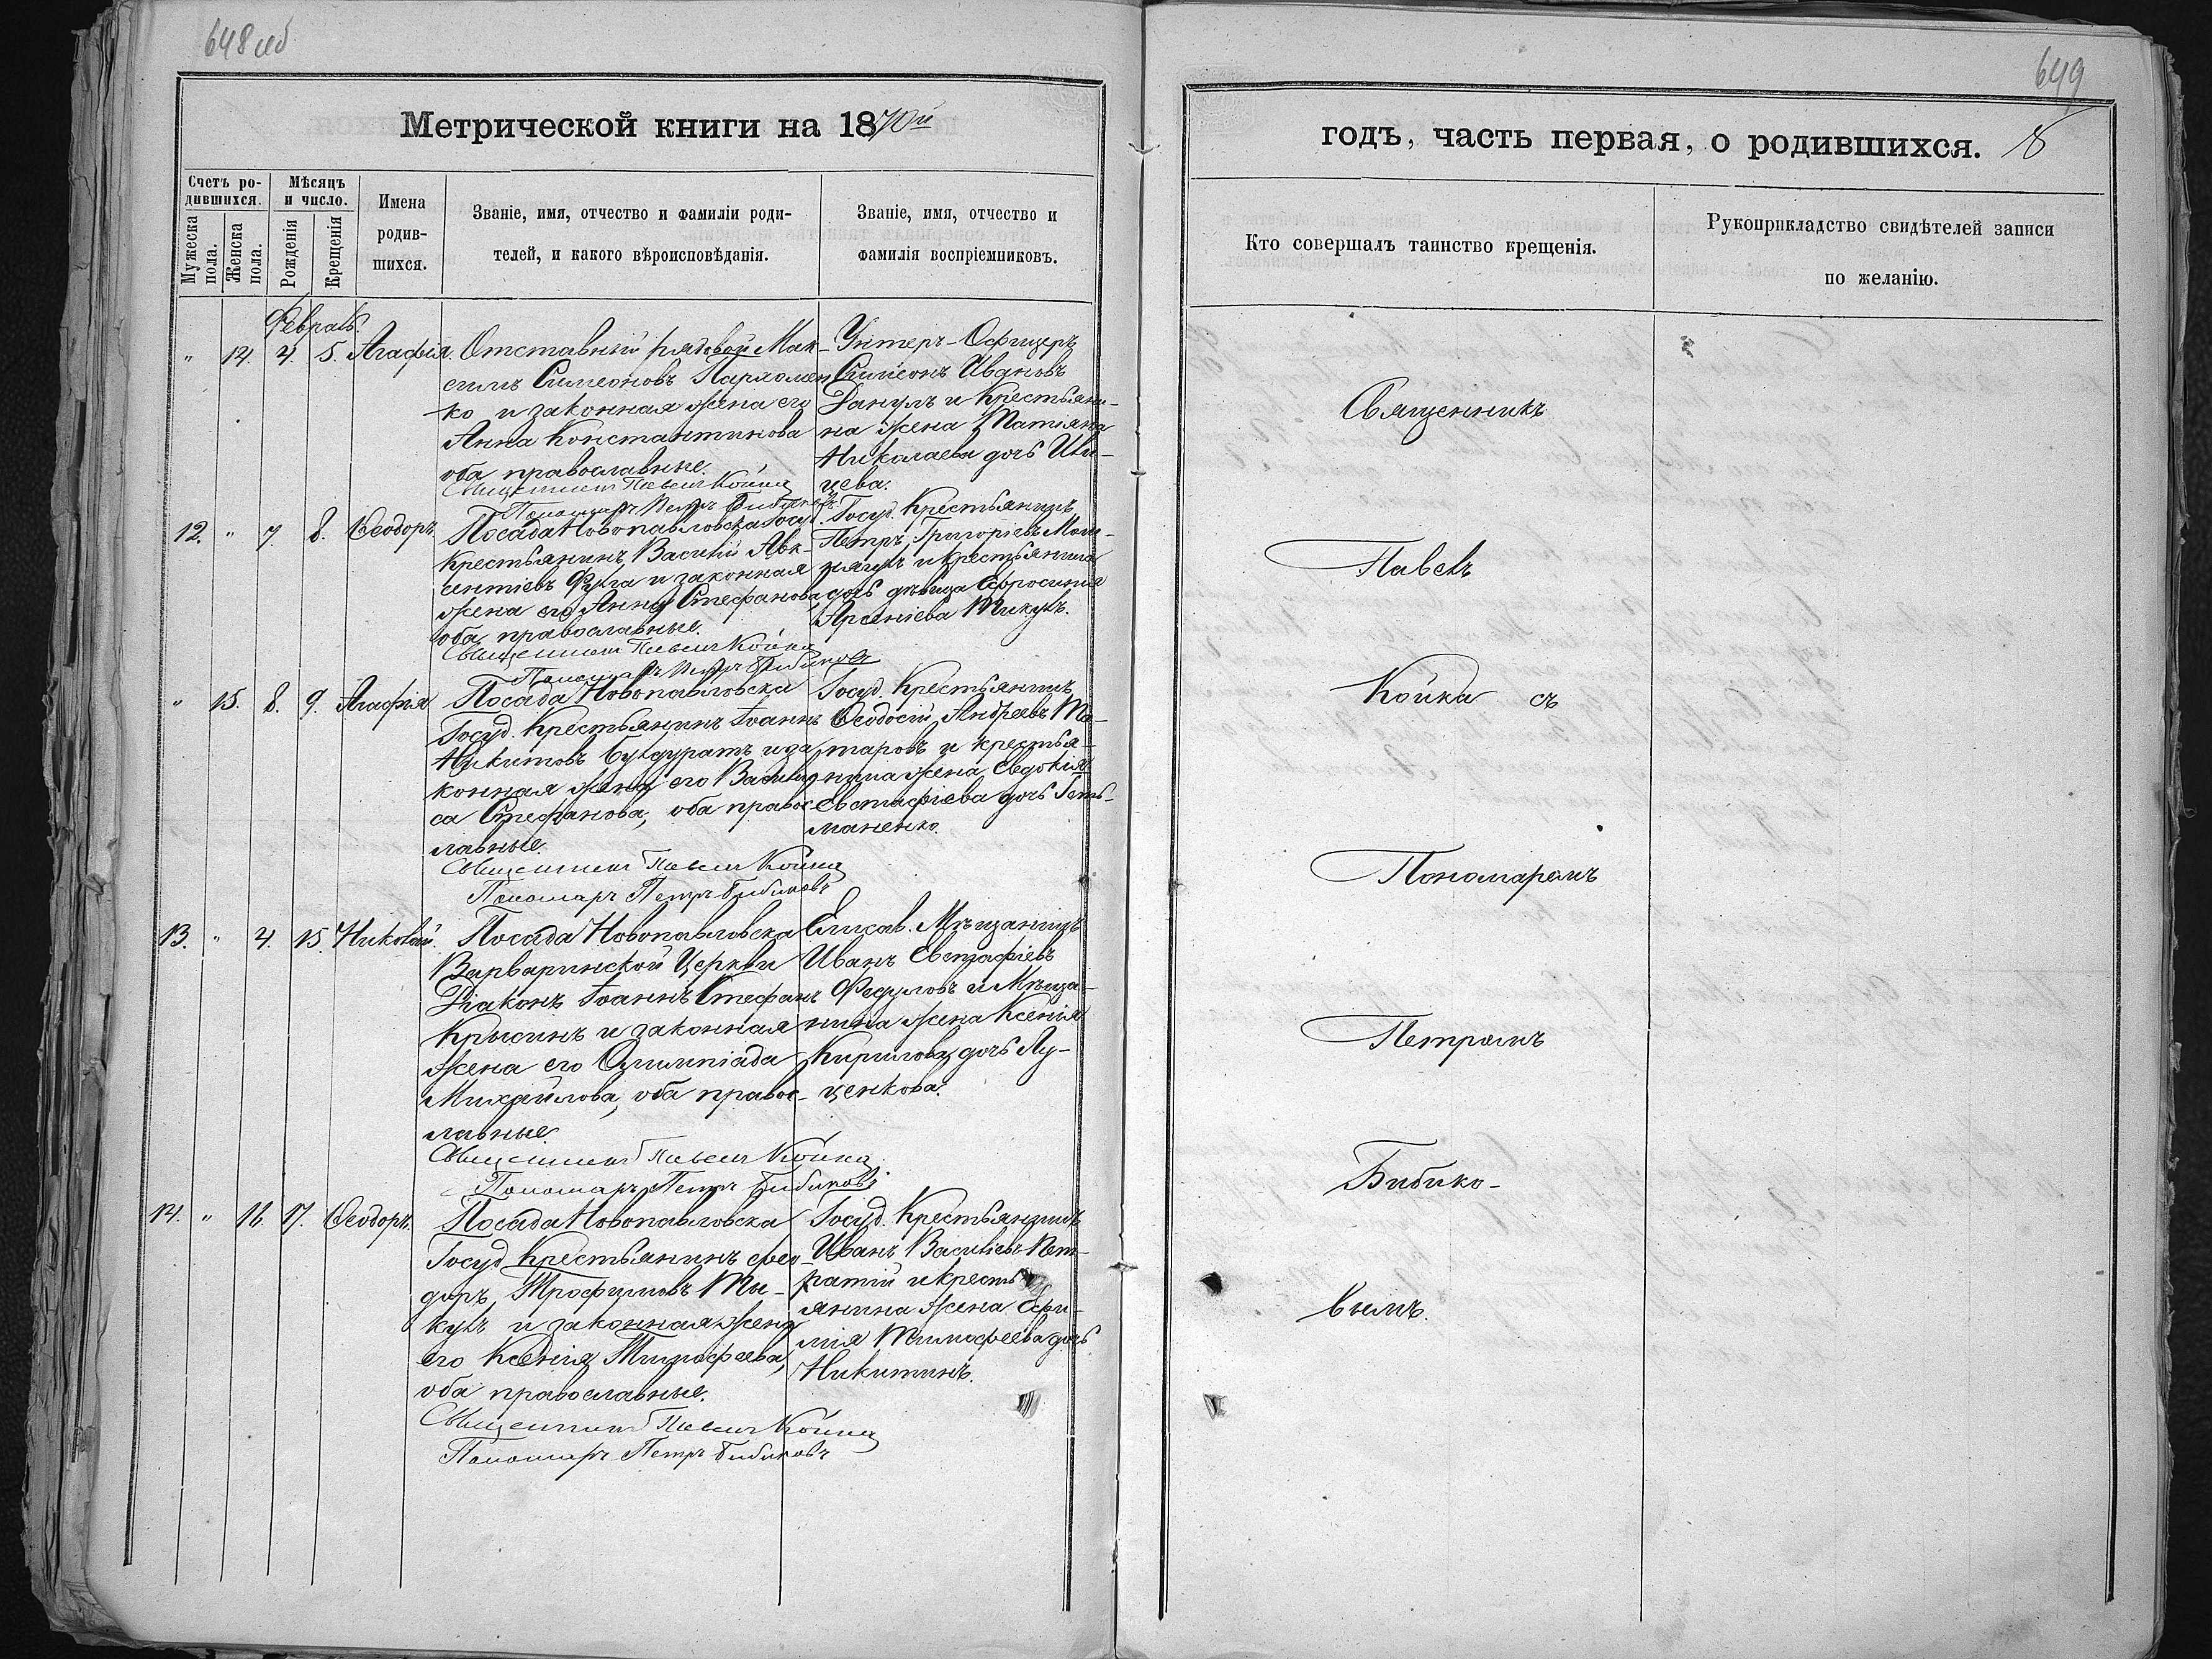 648 об
Метрической книги на 1870й
Счетъ ро-
дившихся.
Мѣсяцъ
и число.
Мужеска
пола.
Женска
пола.
Рожденія
Крещенія
Имена
родив-
шихся.
Званіе, имя, отчество и фамиліи роди-
телей, и какого вѣроисповѣданія.
Званіе, имя, отчество и
фамилія воспріемниковъ.
Февраль.
" 14. 4. 5. Агафія.
Отставный рядовой Мак-
симъ Симеоновъ Пархомен
ко и законная жена его
Анна Константинова
оба православные.
Священникъ Павелъ Койка
Пономарь Петръ Бибиковъ
Унтеръ-Офицеръ
Симеонъ Ивановъ
Данулъ и Крестьяни-
на жена Татіана
Николаева дочь Иви-
цева.
12. " 7. 8. Ѳеодоръ.
Посада Новопавловска Госуд.
Крестьянинъ Василій Авк-
сентіевъ Фуга и законная
жена его Анна Стефанова
оба православные.
Священникъ Павелъ Койка
Пономарь Петръ Бибиковъ
Госуд. Крестьянинъ
Петръ Григоріевъ
и крестьянина
дочь дѣвица Ефросинія
Арсеніева Тикулъ.
" 15. 8. 9. Агафія
Посада Новопавловска
Госуд. Крестьянинъ Іоаннъ
Никитовъ и за
конная жена его Васили
са Стефанова, оба правос-
лавные.
Священникъ Павелъ Койка
Пономарь Петръ Бибиковъ
Госуд. Крестьянинъ
Ѳеодосій Андреевъ Та-
таровъ и крестья-
нина жена Евдокія
Евстафіева дочь Геть-
маненко.
13. " 4. 15. Николай.
Посада Новопавловска
Варваринской Церкви
Діаконъ Іоаннъ Стефанъ
Крысинъ и законная
жена его Олимпіада
Михайлова, оба правос-
лавные.
Священникъ Павелъ Койка
Пономарь Петръ Бибиковъ
Елисав. Мѣщанинъ
Иванъ Евстафіевъ
Федуловъ и Мѣща-
нина жена Ксенія
Кирилова дочь Лу-
ценкова.
14. " 16. 17. Ѳеодоръ.
Посада Новопавловска
Госуд. Крестьянинъ Фео-
доръ Трофимовъ Ти-
кулъ и законная жена
его Ксенія Тимофеева,
оба православные.
Священникъ Павелъ Койка
Пономарь Петръ Бибиковъ
Госуд. Крестьянинъ
Иванъ Василіевъ Кот-
ратій и кресть
янина жена Ефи-
мія Тимофеева дочь
Никитинъ.
649
годъ, часть первая, о родившихся. 18
Кто совершалъ таинство крещенія.
Рукоприкладство свидѣтелей записи
по желанію.
Священникъ
Павелъ
Койка съ
Пономаремъ
Петромъ
Бибико-
вымъ.